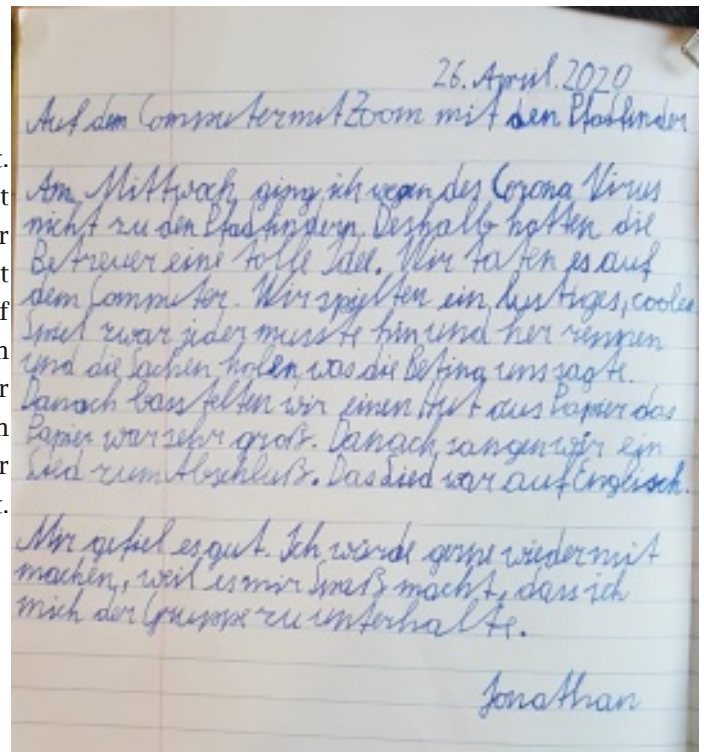 26. April. 2020
Auf dem Computer mit Zoom mit den Pfadfinder
Am Mittwoch ging ich wegen des Corona Virus
nicht zu den Pfadfindern. Deshalb hatten die
Betreuer eine tolle Idee. Wir taten es auf
dem Computer. Wir spielten ein lustiges, cooles
Spiel zwar jeder musste hin und her rennen
und die Sachen holen was die uns sagte.
Danach basstelten wir einen Hut aus Papier das
Papier war sehr groß. Danach sangen wir ein
Lied zum Abschluß. Das Lied war auf Englisch.
Mir gefiel es gut. Ich würde gerne wieder mit
machen, weil es mir Spaß macht, dass ich
mich der Gruppe zu unterhalte.
Jonathan